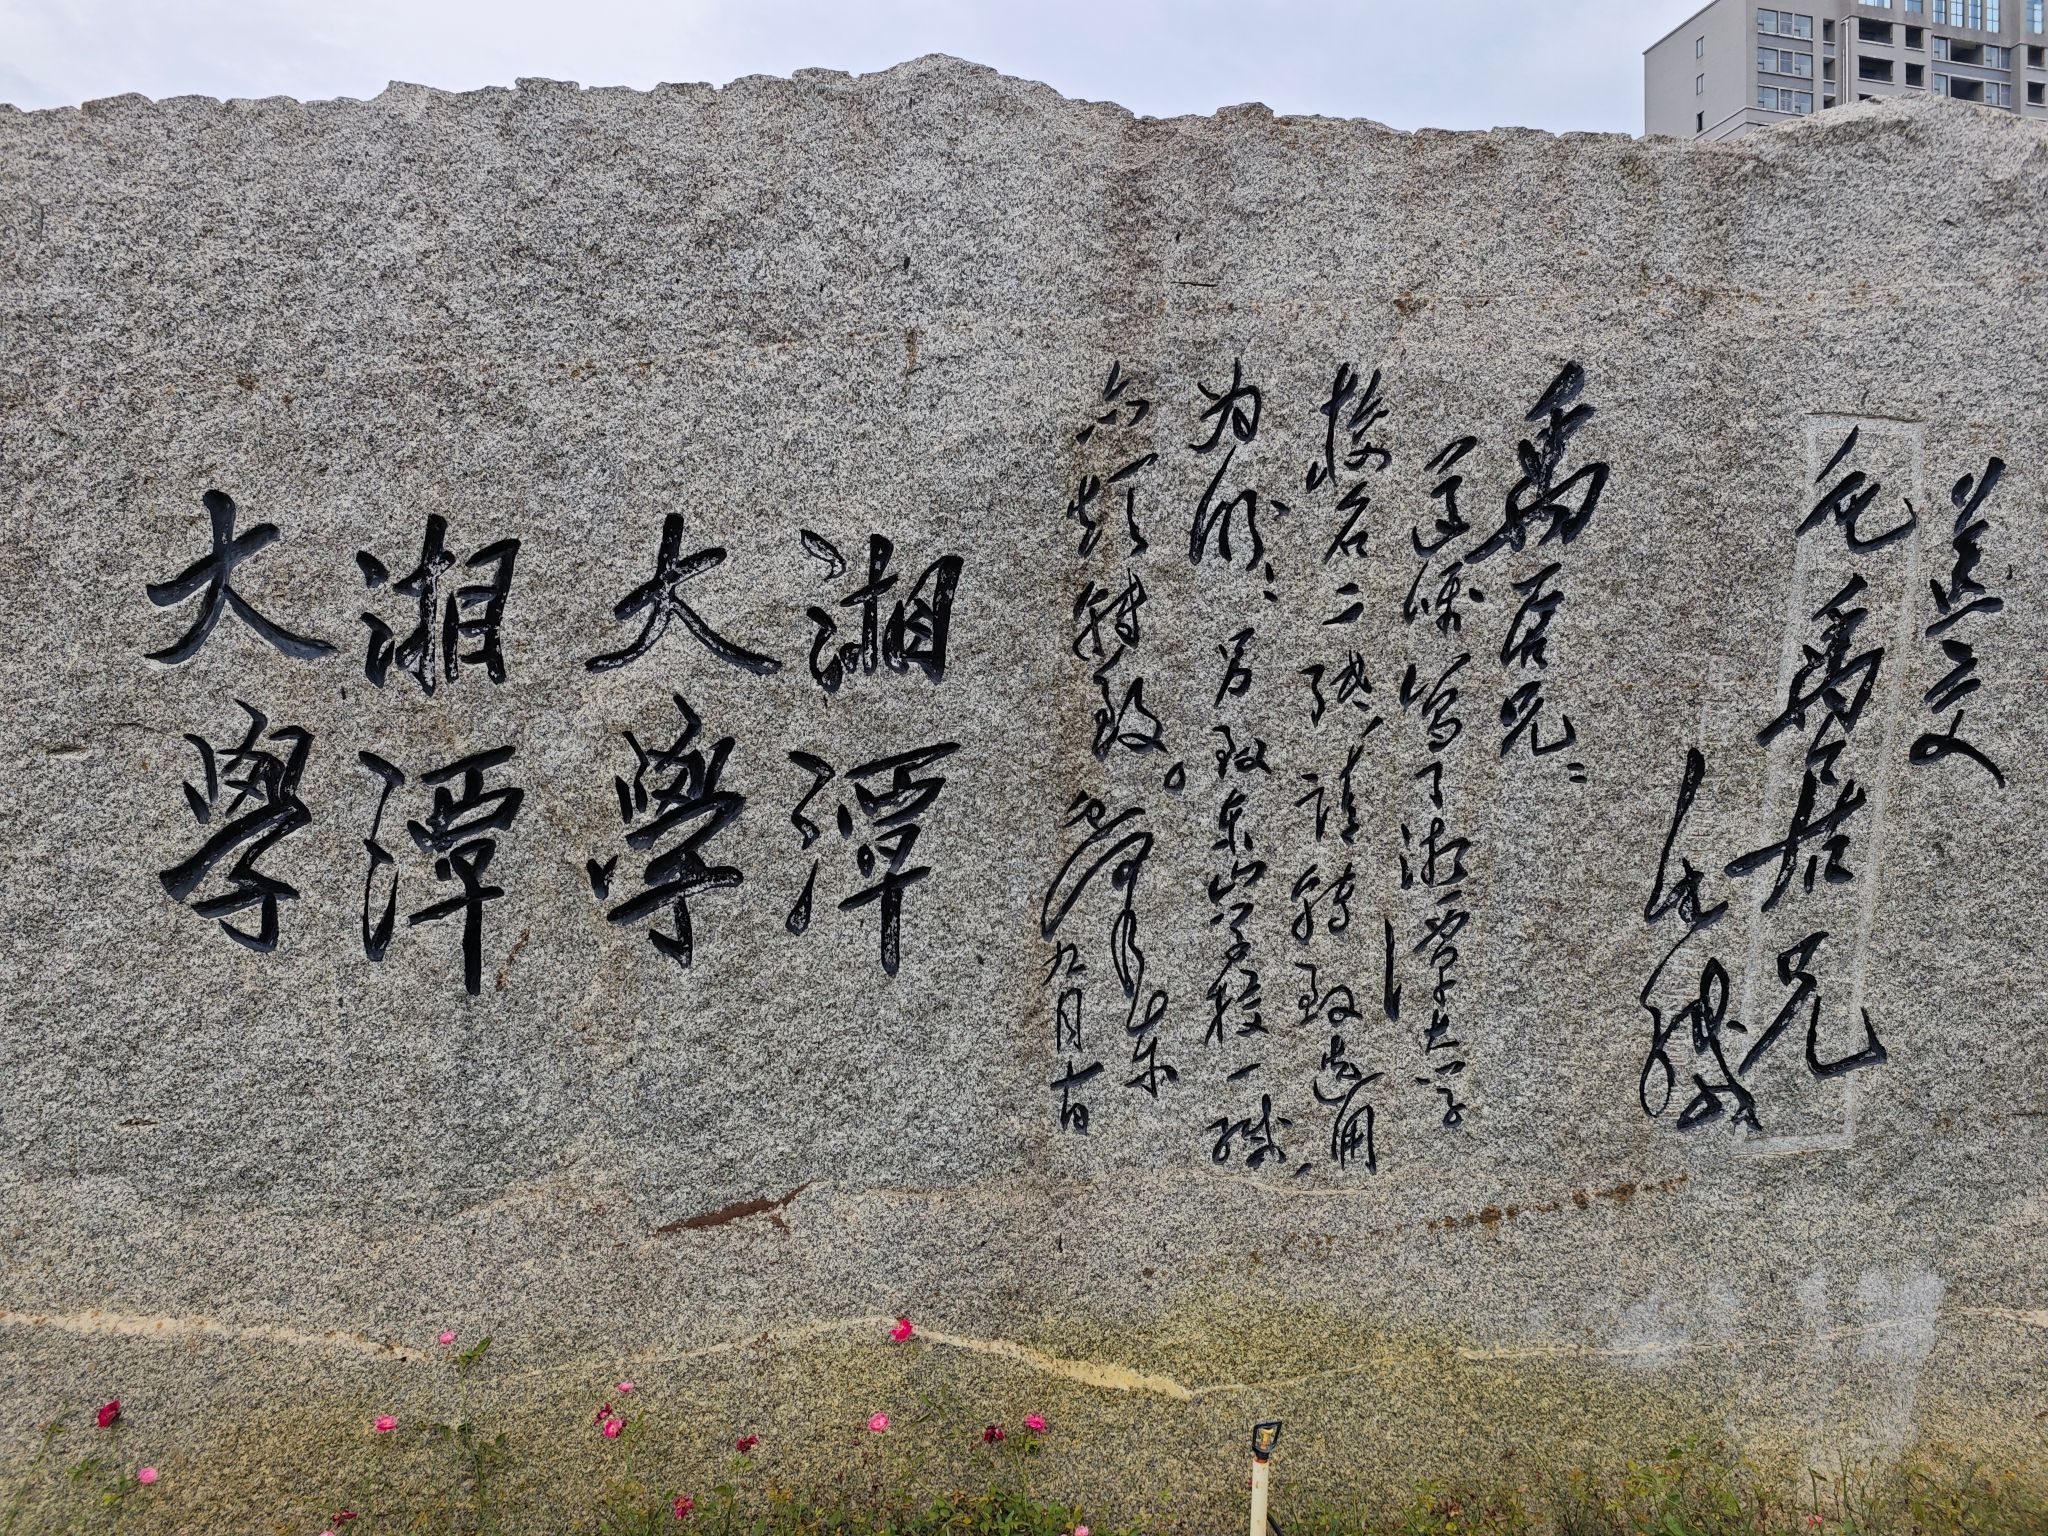 毛禹居兄
禹居兄：
遵嘱写了湘潭大学
校名二张，请转致选用
为盼！另致东山学校一缄，
亦烦转致。
毛泽东
九月十日
湘潭
大學
湘潭
大學